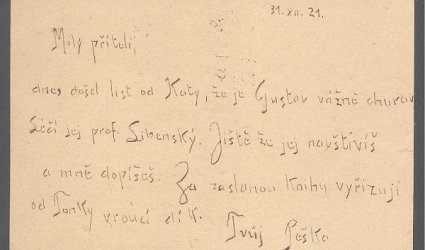 31. XII. 21.
Milý příteli,
dnes došel list od Katy, že je Gustav vážně churav
Léčí jej prof. Libenský. Jistě že jej navštívíš
a mně dopíšeš. Za zaslanou knihu vyřizuji
od Tonky vroucí dík. Tvůj Peška